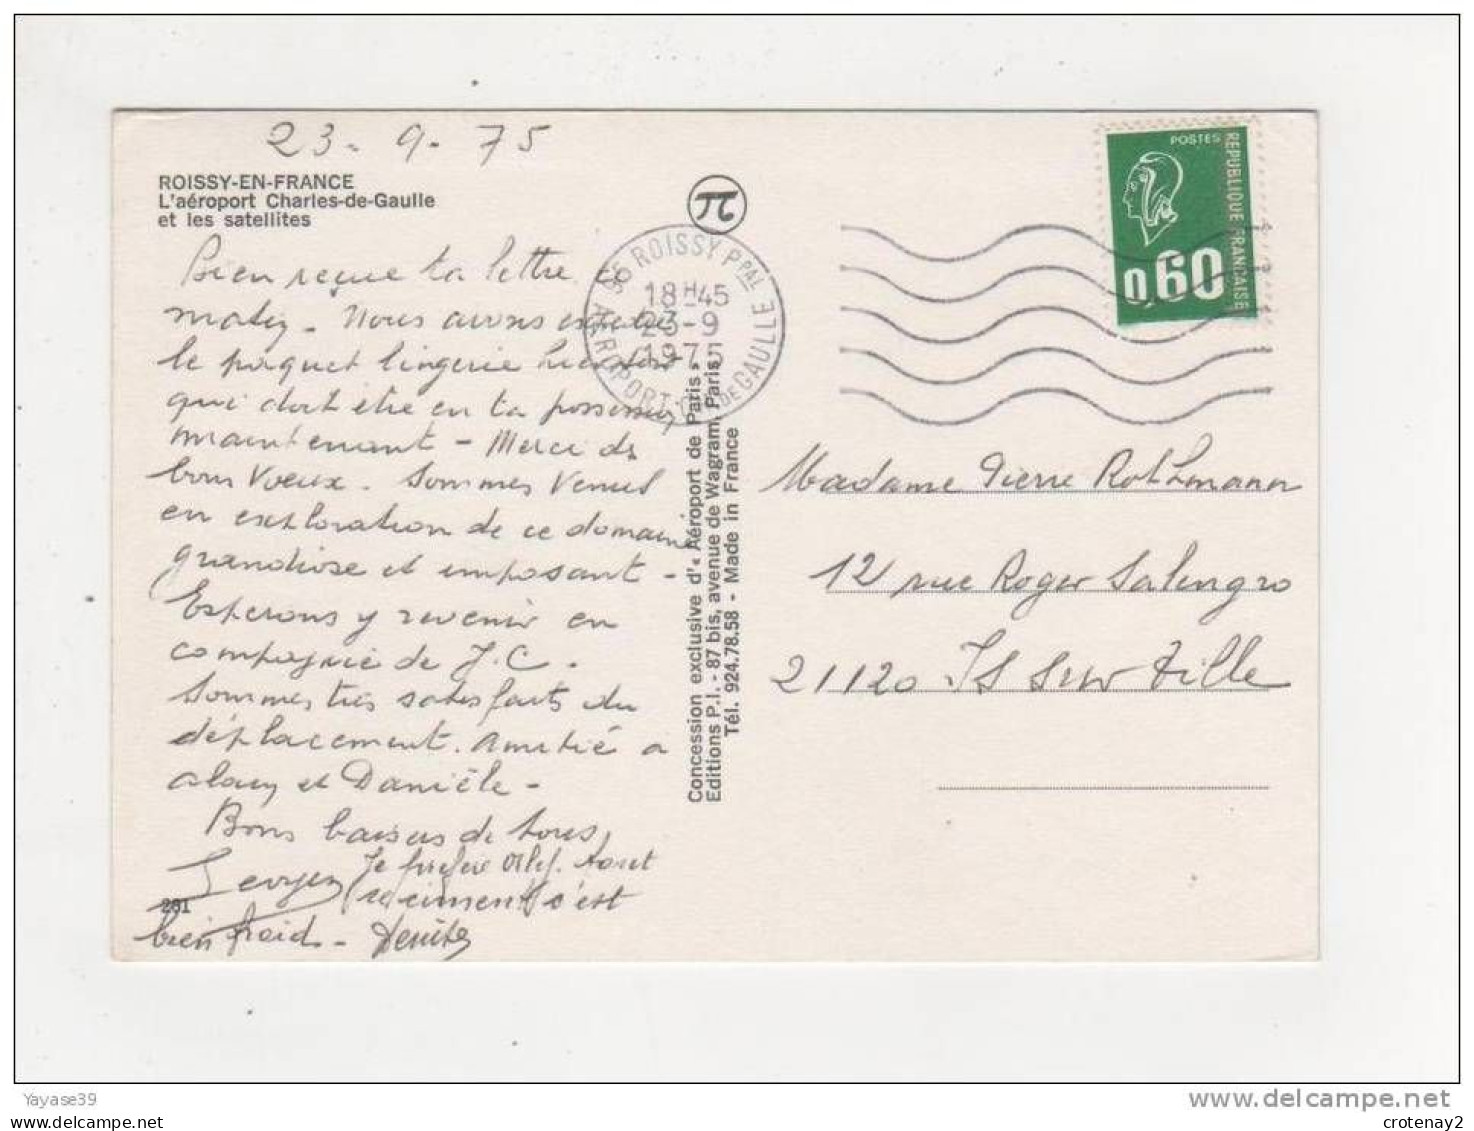 23-9-75
ROISSY-EN-FRANCE
L'aéroport Charles-de-Gaulle
et les satellites
Bien reçue ta lettre ce
matin. Nous avons
le paquet lingerie hier soir
qui doit être en ta possession
maintenant - Merci de
bons Voeux. Sommes Venus
en exploration de ce domaine
grandiose et imposant -
Esperons y revenir en
compagnie de J.C.
Sommes très satisfaits du
déplacement. Amitié à
Alain et Danièle -
Bons baisers de tous,
Je préfère Orly. tout
ce ciment c'est
bien froid - Denise
281
π
95 ROISSY PPAL
AEROPORT CH. DE GAULLE
18H45
23-9
1975
Concession exclusive d'« Aéroport de Paris »
Editions P.I. - 87 bis, avenue de Wagram, Paris
Tél. 924.78.58 - Made in France
POSTES
REPUBLIQUE FRANÇAISE
0,60
Madame Pierre Rothmann
12 rue Roger Salengro
21120 IS sur Tille
Yayase39
www.delcampe.net
crotenay
crotenay2